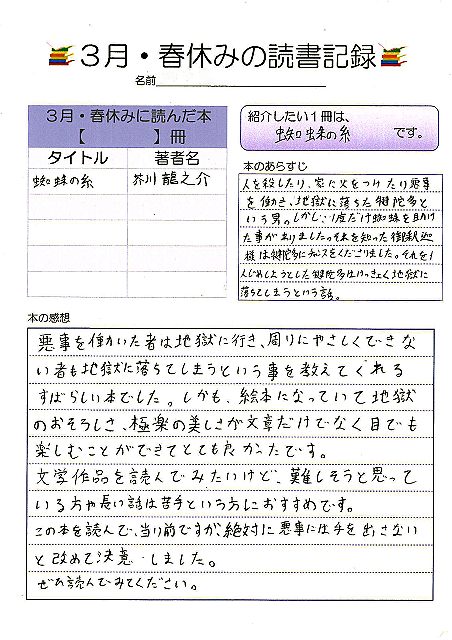 3月・春休みの読書記録
名前
3月・春休みに読んだ本
【 】冊
タイトル 著者名
蜘蛛の糸 芥川龍之介
紹介したい1冊は、
蜘蛛の糸 です。
本のあらすじ
人を殺したり、家に火をつけたり悪事
を働き、地獄に落ちた犍陀多と
いう男。しかし、1度だけ蜘蛛を助け
た事がありました。それを知った御釈迦
様は犍陀多にチャンスをくださりました。それを1
人じめしようとした犍陀多はいっきょく地獄に
落ちてしまうという話。
本の感想
悪事を働いた者は地獄に行き、周りにやさしくできな
い者も地獄に落ちてしまうという事を教えてくれる
すばらしい本でした。しかも、絵本になっていて地獄
のおそろしさ、極楽の美しさが文章だけでなく目でも
楽しむことができてとても良かったです。
文学作品を読んでみたいけど、難しそうと思って
いる方や長い話は苦手という方におすすめです。
この本を読んで、当り前ですが、絶対に悪事には手を出さない
と改めて決意 しました。
ぜひ読んでみてください。